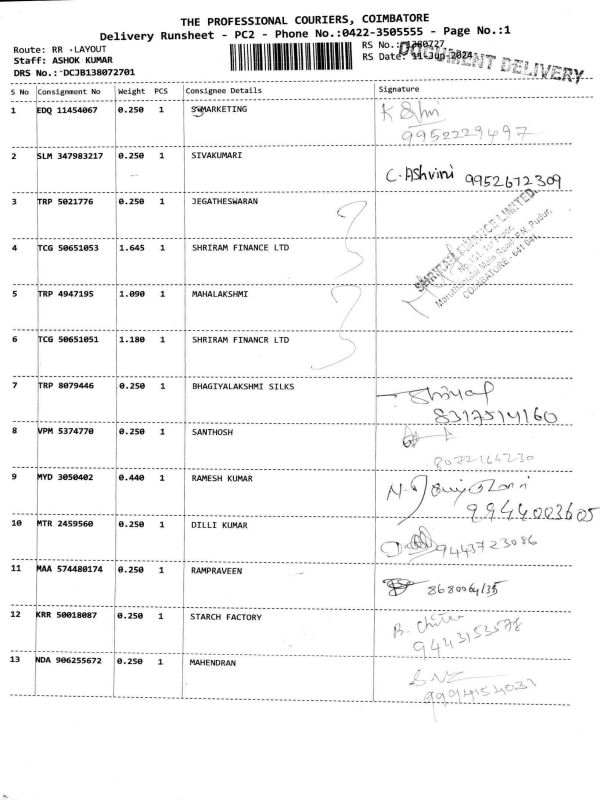 THE PROFESSIONAL COURIERS, COIMBATORE
Delivery Runsheet - PC2 - Phone No.:0422-3505555 - Page No.:1
Route: RR -LAYOUT
RS No.: 1380727
Staff: ASHOK KUMAR
RS Date: 11-Jun-2024
DOCUMENT DELIVERY
DRS No.: DCJB138072701
S No Consignment No Weight PCS Consignee Details Signature
1 EDQ 11454067 0.250 1 S MARKETING
9952229497
2 SLM 347983217 0.250 1 SIVAKUMARI
C. Ashvini 9952672309
3 TRP 5021776 0.250 1 JEGATHESWARAN
SHRIRAM FINANCE LIMITED
4 TCG 50651053 1.645 1 SHRIRAM FINANCE LTD
COIMBATORE - 641 041
5 TRP 4947195 1.090 1 MAHALAKSHMI
6 TCG 50651051 1.180 1 SHRIRAM FINANCR LTD
7 TRP 8079446 0.250 1 BHAGIYALAKSHMI SILKS
8317514160
8 VPM 5374770 0.250 1 SANTHOSH
8072164230
9 MYD 3050402 0.440 1 RAMESH KUMAR
9944003605
10 MTR 2459560 0.250 1 DILLI KUMAR
9443723086
11 MAA 574480174 0.250 1 RAMPRAVEEN
8680064135
12 KRR 50018087 0.250 1 STARCH FACTORY
9443153578
13 NDA 906255672 0.250 1 MAHENDRAN
9994154031